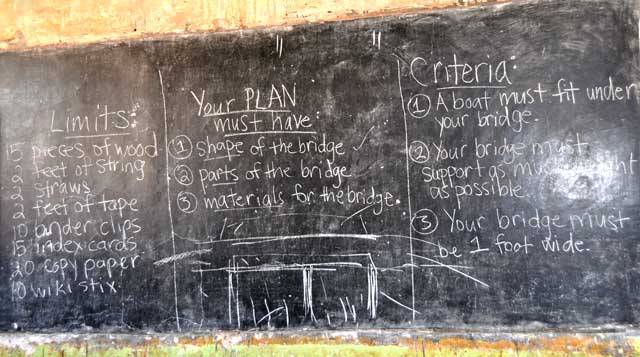 Limits:
5 pieces of wood
2 feet of string
2 straws
2 feet of tape
10 binder clips
15 index cards
20 copy paper
10 wiki stix
Your PLAN
must have:
① shape of the bridge
② parts of the bridge
③ materials for the bridge.
Criteria:
① A boat must fit under
your bridge.
② Your bridge must
support as much weight
as possible.
③ Your bridge must
be 1 foot wide.